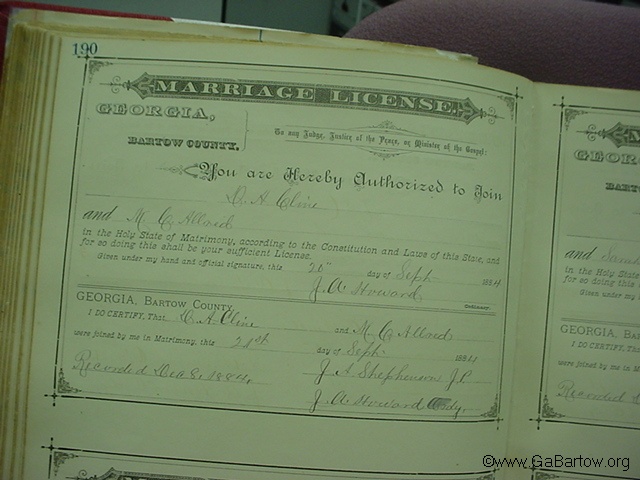 190
MARRIAGE LICENSE.
GEORGIA,
BARTOW COUNTY.
To any Judge, Justice of the Peace, or Minister of the Gospel:
You are Hereby Authorized to Join
D. A. Cline
and M. C. Allred
in the Holy State of Matrimony, according to the Constitution and Laws of this State, and
for so doing this shall be your sufficient License.
Given under my hand and official signature, this 20" day of Sept 1884
J. A. Howard
Ordinary.
GEORGIA, BARTOW COUNTY.
I DO CERTIFY, That D. A. Cline and M. C. Allred
were joined by me in Matrimony, this 21st day of Sept 1884
J. A. Stephenson J.P.
Recorded Dec 8, 1884.
J. A. Howard Ordy.
MA
GEORGIA
BART
and
in the Holy State
for so doing this
Given under my
GEORGIA, BAR
I DO CERTIFY, T
were joined by me in M
Recorded
©www.GaBartow.org